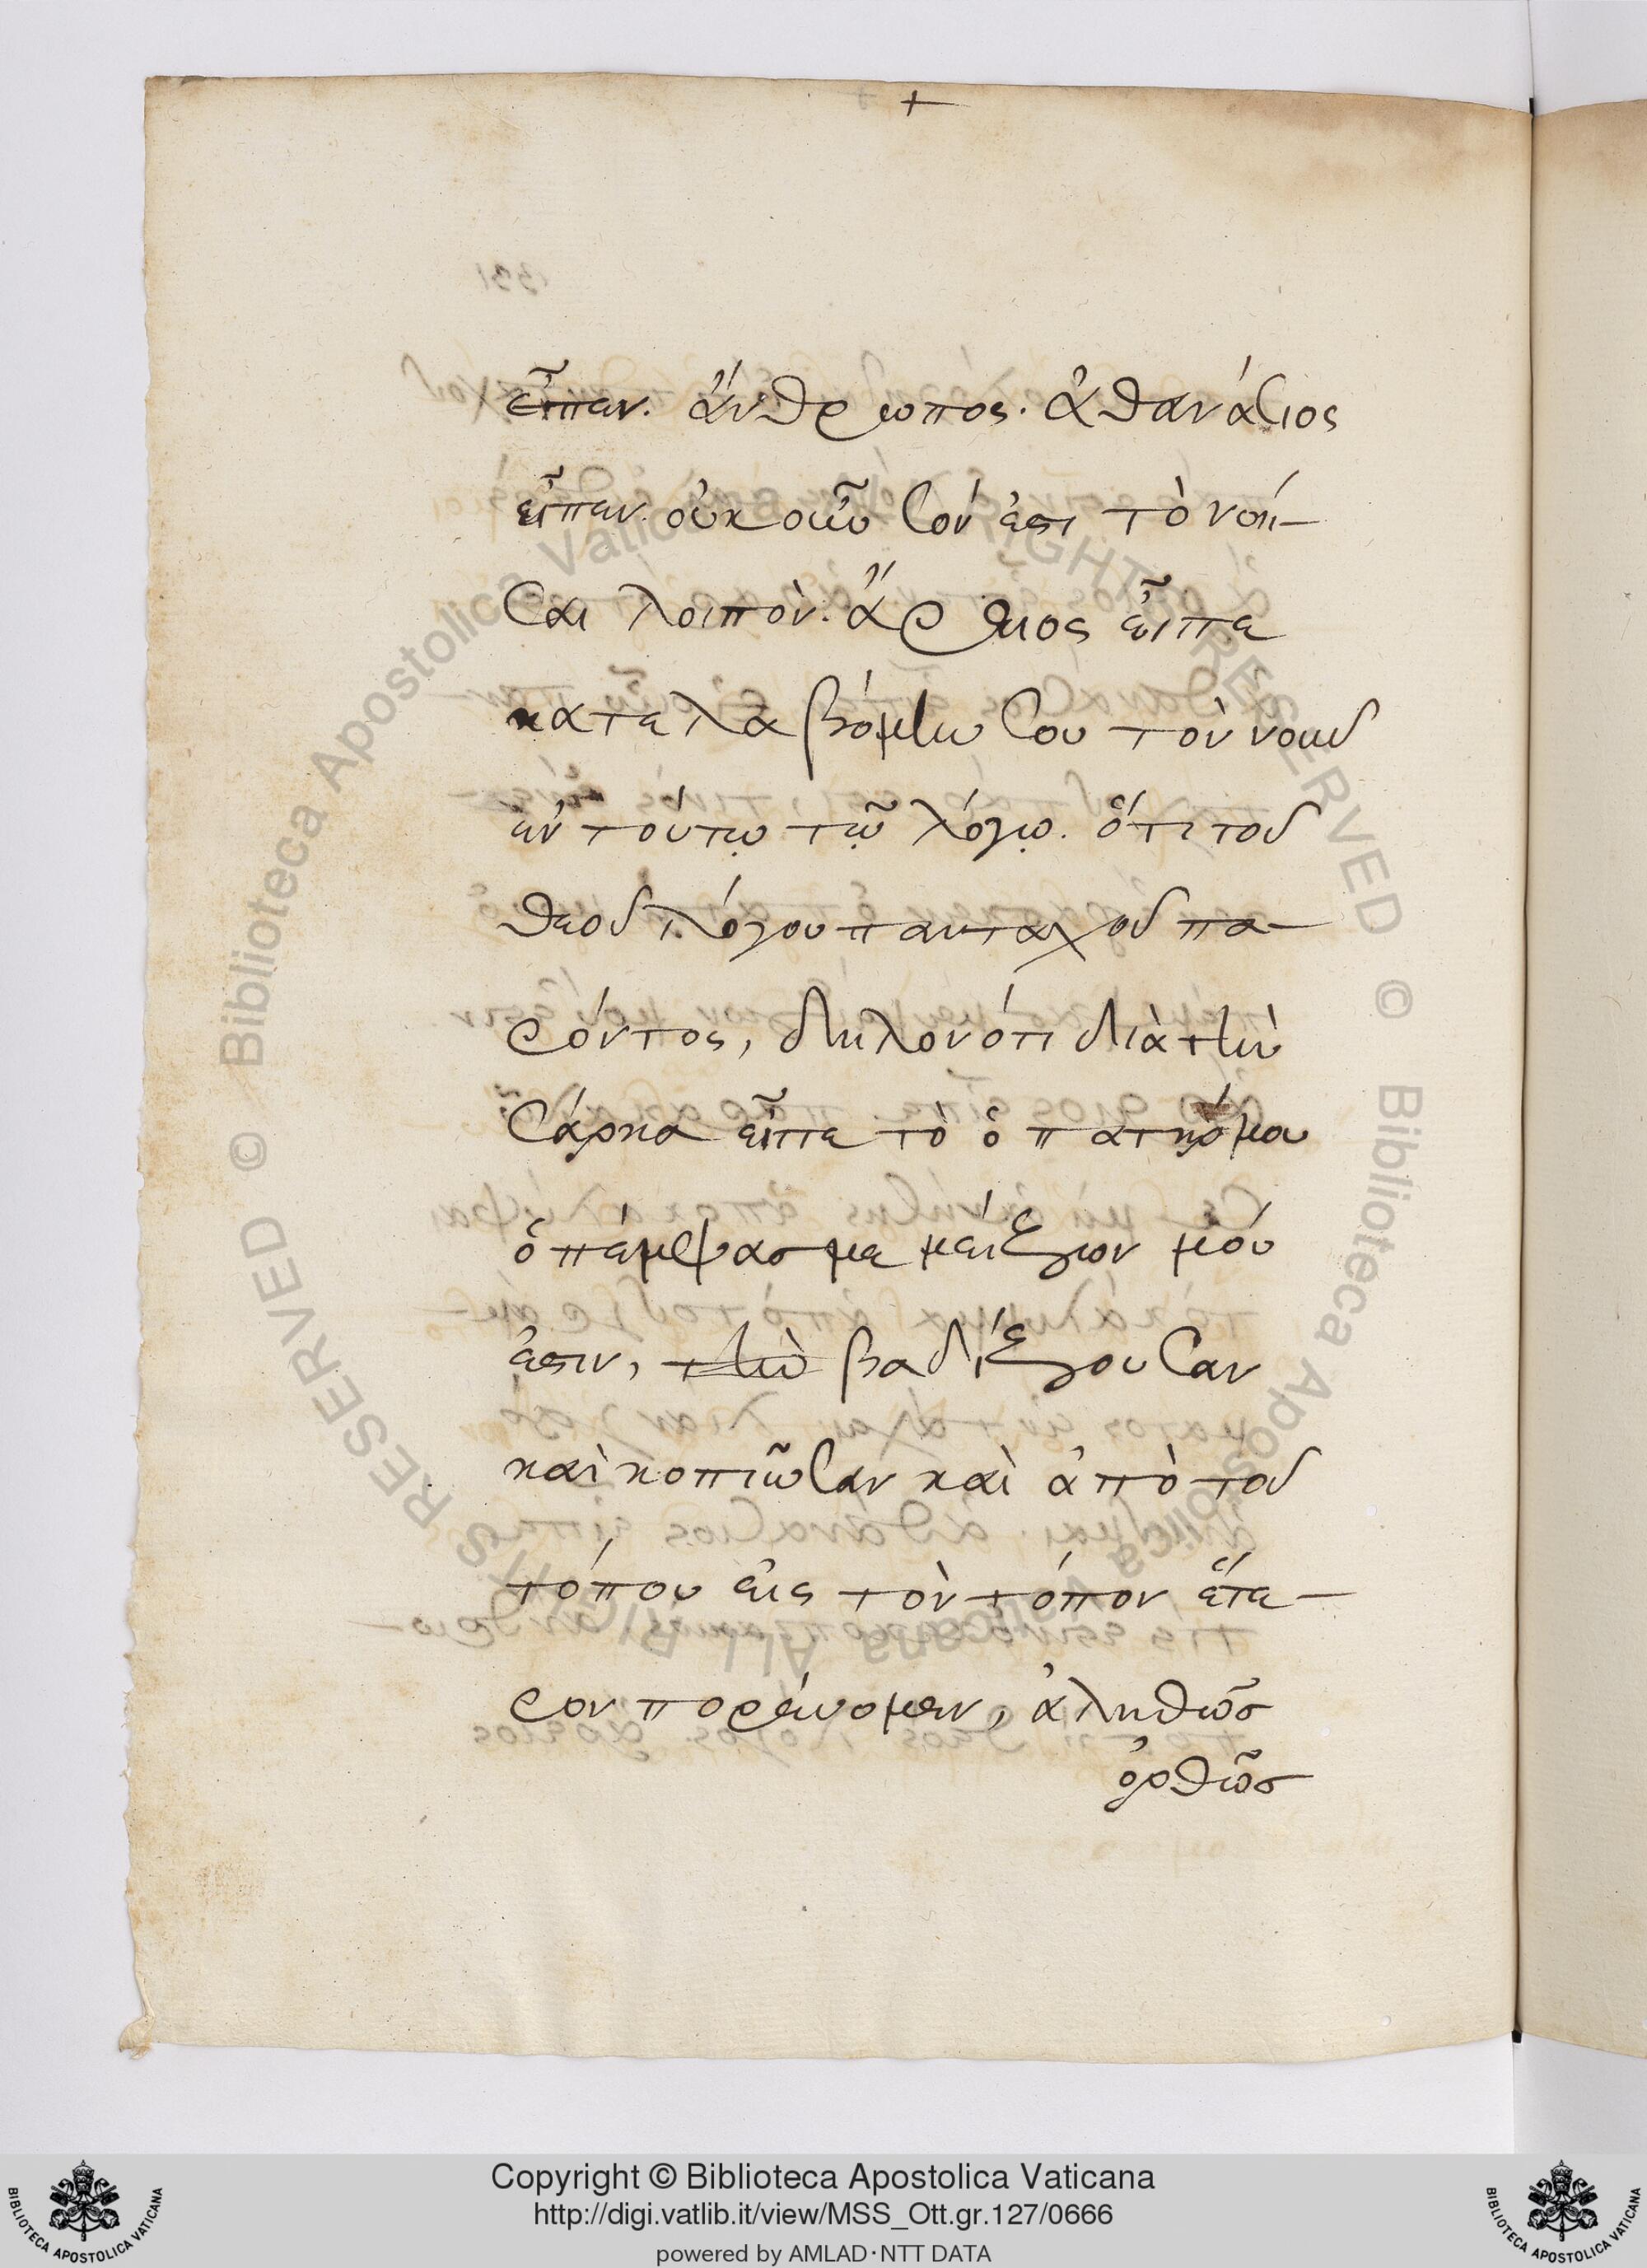 +
εἶπεν. ἄνθρωπος. ἀθανάσιος
εἶπεν. οὐκοῦν σόν ἐστι τὸ νοῆ-
σαι λοιπὸν. ἄρειος εἶπε
κατελαβόμην σου τὸν νοῦν
ἐν τούτῳ τῷ λόγῳ. ὅτι τοῦ
θεοῦ λόγου πανταχοῦ πα-
ρόντος, δηλονότι διὰ τὴν
σάρκα εἶπε τὸ ὁ πατήρ μου
ὁ πέμψας με μείζων μού
ἐστιν, τὴν βαδίζουσαν
καὶ κοπιῶσαν καὶ ἀπὸ τοῦ
τόπου εἰς τὸν τόπον ἕτε-
ρον πορεύομεν, ἀληθῶς
ὀρθῶς
Copyright © Biblioteca Apostolica Vaticana
http://digi.vatlib.it/view/MSS_Ott.gr.127/0666
powered by AMLAD·NTT DATA
BIBLIOTECA APOSTOLICA VATICANA
BIBLIOTECA APOSTOLICA VATICANA
© Biblioteca Apostolica Vaticana ALL RIGHTS RESERVED © Biblioteca Apostolica Vaticana ALL RIGHTS RESERVED